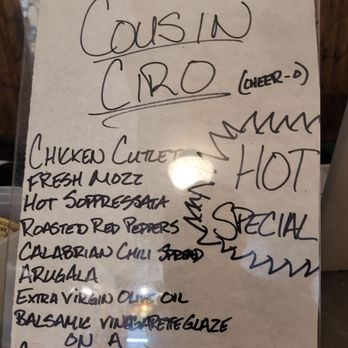 COUSIN
CIRO (CHEER-O)
HOT
SPECIAL
CHICKEN CUTLET
FRESH MOZZ
HOT SOPPRESSATA
ROASTED RED PEPPERS
CALABRIAN CHILI SPREAD
ARUGALA
EXTRA VIRGIN OLIVE OIL
BALSAMIC VINAGARETE GLAZE
ON A